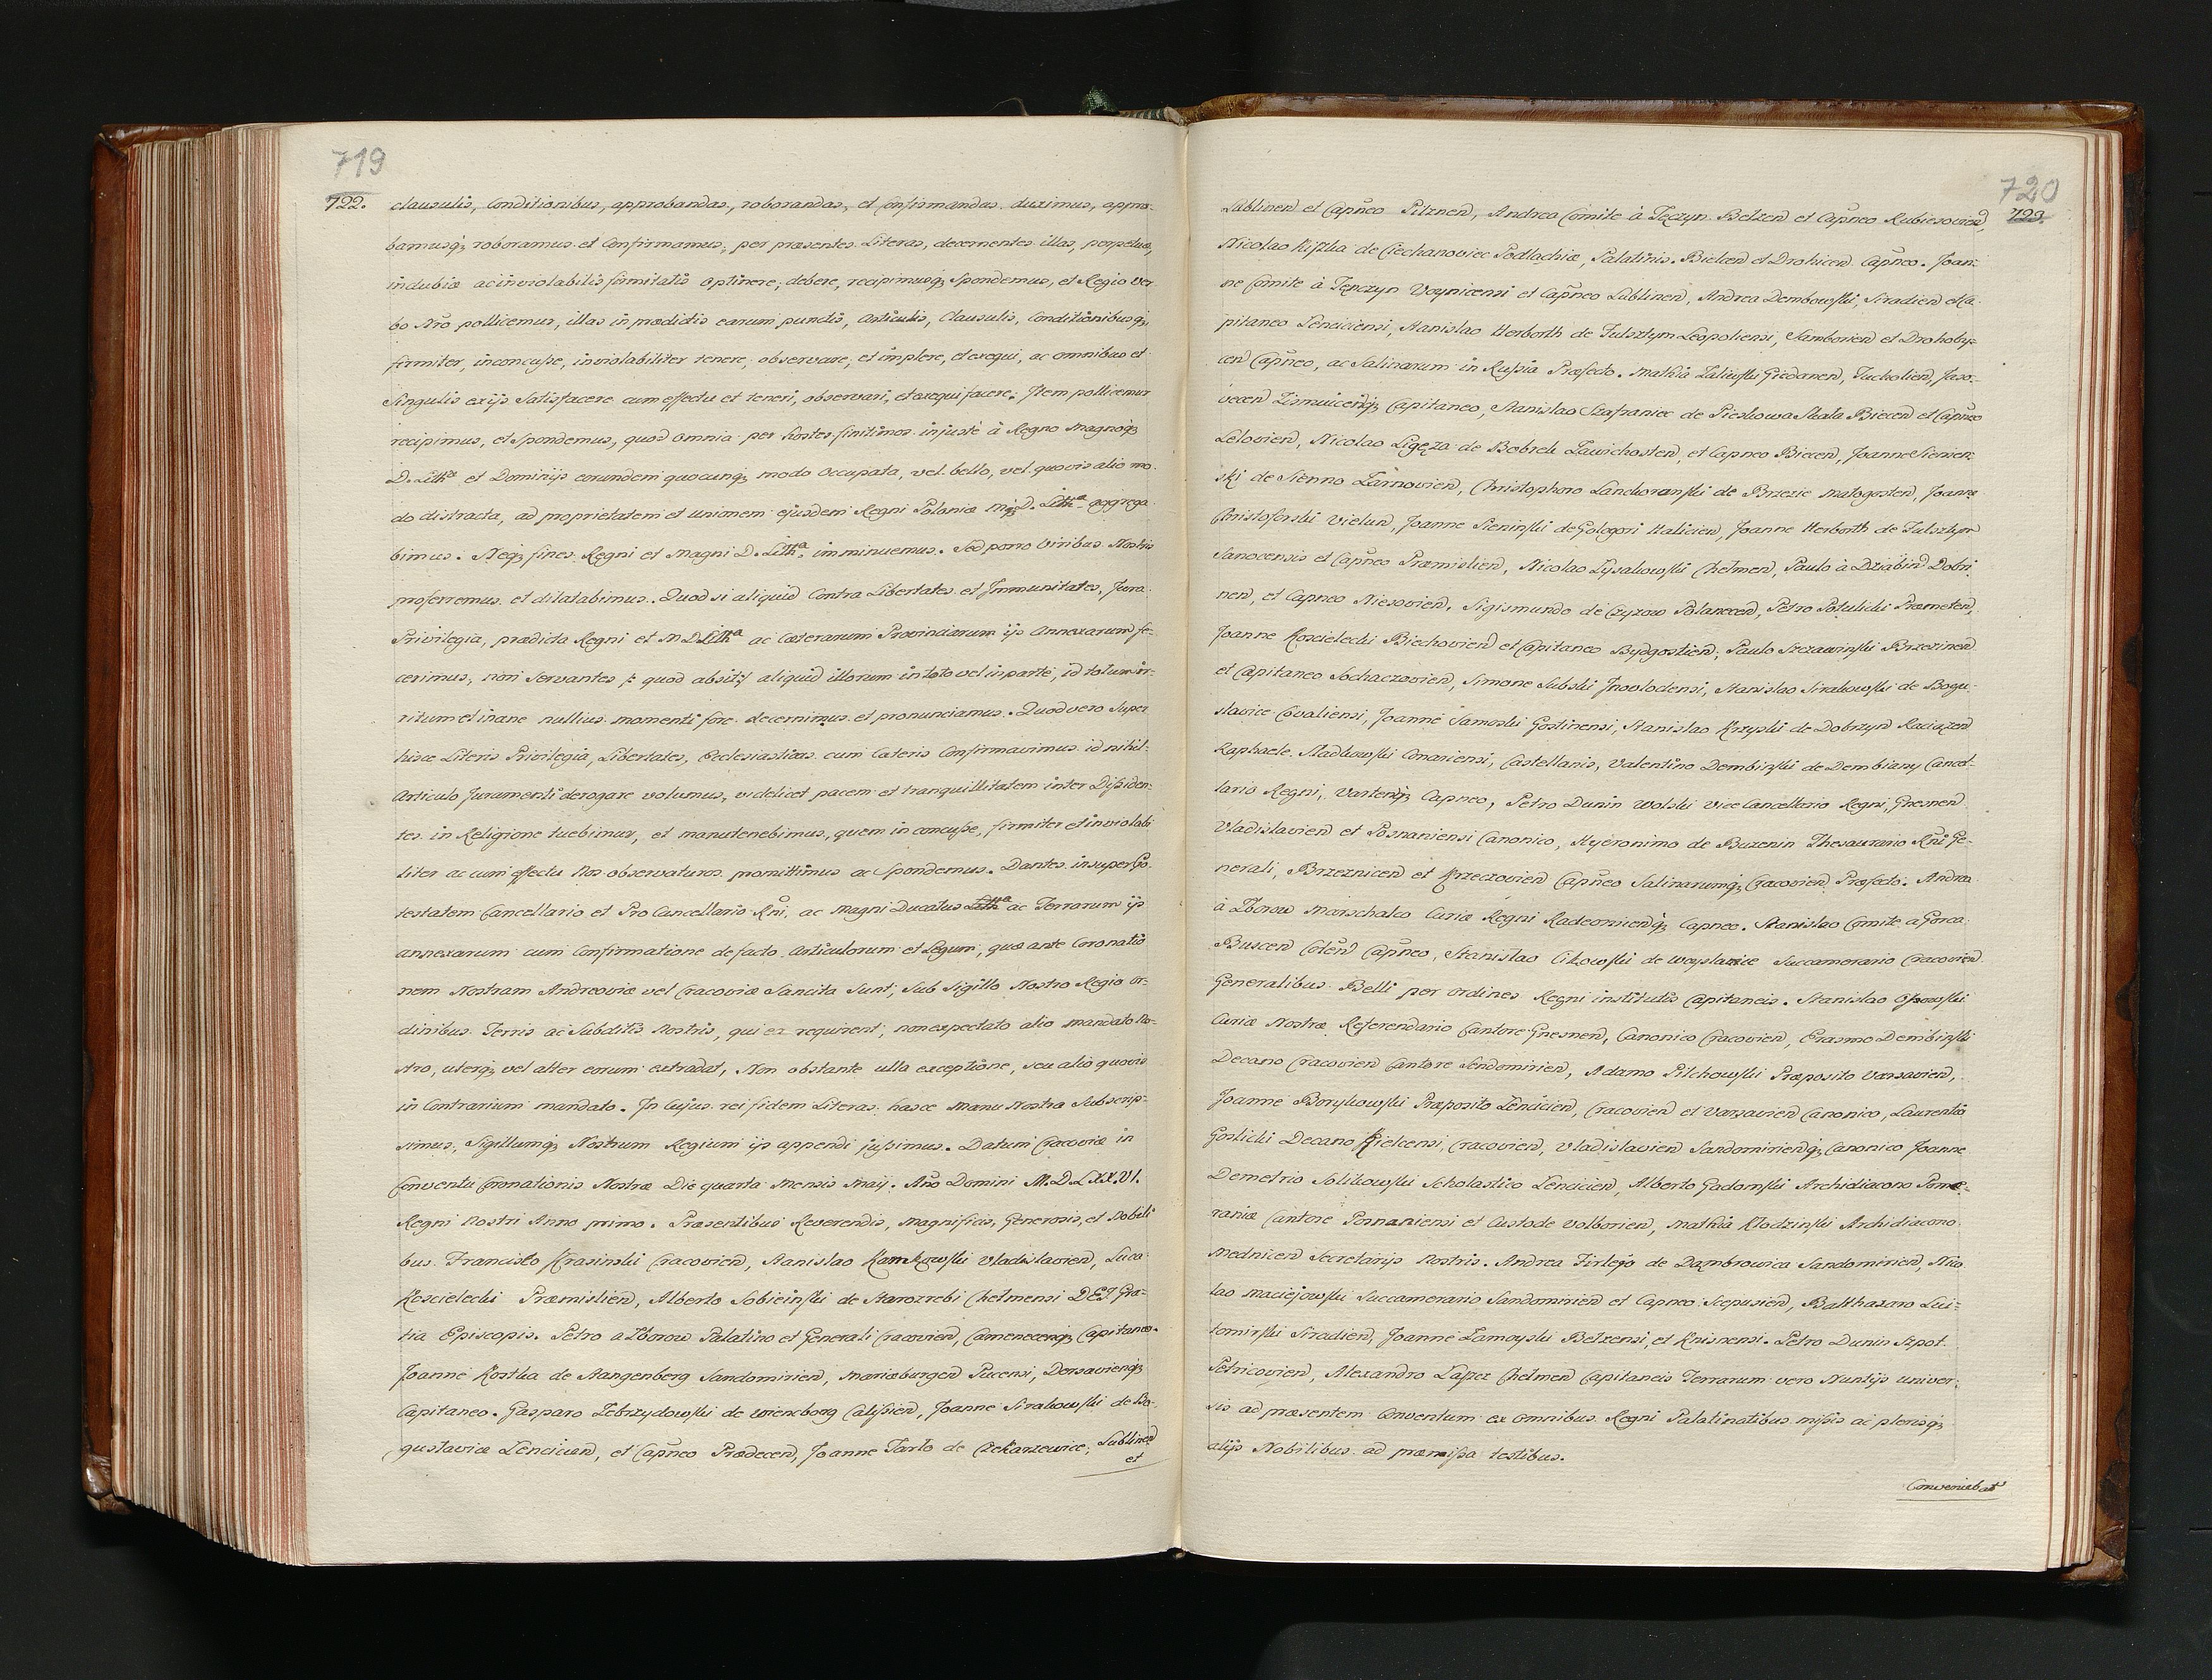 719
722.
clausulis, Conditionibus, approbandas, roborandas, et Confirmandas duximus, appro-
bamusq; roboramus et Confirmamus, per præsentes Literas, decernentes illas, perpetuæ,
indubiæ ac inviolabilis firmitatis optinere, debere, recipimusq; Spondemus, et Regio Ver
bo Nro pollicemur, illas in prædictis earum punctis, Articulis, Clausulis, Conditionibusq;
firmiter, inconcusse, inviolabiliter tenere, observare, et implere, et exequi, ac omnibus et
Singulis ex ijs Satisfacere cum effectu et teneri, observari, et exequi facere. Item pollicemur
recipimus, et Spondemus, quod omnia per hostes finitimos injustè à Regno Magnoq;
D. Litha et Dominijs eorundem quocunq; modo Occupata, vel bello, vel quovis alio mo
do distracta, ad proprietatem et unionem ejusdem Regni Poloniæ Mq; D. Litha aggrega
bimus. Neq; fines Regni et Magni D. Litha imminuemus. Sed porro Viribus Nostris
proferremus et dilatabimus. Quod si aliquid Contra Libertates et Immunitates, Jura
Privilegia, prædicta Regni et M D Litha ac Cæterarum Provinciarum ijs Annexarum fe-
cerimus, non Servantes /: quod absit :/ aliquid illorum in toto vel in parte, id totum ir-
ritum et inane nullius momenti fore decernimus et pronunciamus. Quod vero Super
hisce Literis Privilegia, Libertates, Ecclesiasticas cum Cæteris Confirmavimus id nihil
Articulo Juramenti derogare volumus, videlicet pacem et tranquillitatem inter Dissiden-
tes in Religione tuebimur, et manutenebimus, quem inconcusse, firmiter et inviolabi
liter ac cum effectu Nos observaturos promittimus ac Spondemus. Dantes insuper Po-
testatem Cancellario et Pro Cancellario Rni, ac Magni Ducatus Litha ac Terrarum ijs
annexarum cum Confirmatione de facto Articulorum et Legum, quæ ante Coronatio
nem Nostram Andreoviæ vel Cracoviæ Sancita Sunt, Sub Sigillo Nostro Regio Or-
dinibus Terris ac Subditis Nostris, qui ex requirent, non expectato alio mandato No-
stro, uterq; vel alter eorum extradat, Non obstante ulla exceptione, seu alio quovis
in Contrarium mandato. In Cujus rei fidem Literas hasce Manu Nostra Subscrip-
simus, Sigillumq; Nostrum Regium ijs appendi jussimus. Datum Cracoviæ in
Conventu Coronationis Nostræ Die quarta Mensis Maij. Ano Domini M.D.LXX.VI.
Regni Nostri Anno primo. Præsentibus Reverendis, Magnificis, Generosis, et Nobili
bus. Francisco Krasinski Cracovien, Stanislao Karnkowski Vladislavien, Luca
Koscielecki Præmislien, Alberto Sobieinski de Starozrebi Chelmensi DEI Gra-
tia Episcopis. Petro a Zborow Palatino et Generali Cracovien, Camenecenq; Capitaneo.
Joanne Kostka de Stangenberg Sandomirien, Mariæburgen Pucensi, Dersavienq;
Capitaneo. Gasparo Zebrzydowski de Wiencborg Calissien, Joanne Sirakowski de Bo-
guslavice Lencicien, et Capneo Prædecen, Joanne Tarlo de Czekarzewice, Lublinen
et
720
723.
Lublinen et Capneo Pilznen, Andrea Comite à Tęczyn Belzen et Capneo Rubiesovien,
Nicolao Kiszka de Ciechanoviec Podlachiæ, Palatinis. Bielcen et Drohicen Capneo. Joan-
ne Comite à Tęnczyn Voynicensi et Capneo Lublinen, Andrea Dembowski, Siradien et Ca
pitaneo Lenciciensi, Stanislao Herborth de Fulsztyn Leopoliensi, Samborien et Drohoby-
cen Capneo, ac Salinarum in Russia Præfecto. Mathia Zaliwski Giedanen, Tucholien, Jaso-
vecen Zismuicenq; Capitaneo, Stanislao Szafraniec de Pieskowa Skala Biecen et Capneo
Lelovien, Nicolao Ligęza de Bobrek Zawichosten, et Capneo Biecen, Joanne Sienien-
ski de Sienno Zarnovien, Christophoro Lanckoranski de Brzezie Malogosten, Joanne
Christoforski Vielun, Joanne Sieninski de Gologori Halicien, Joanne Herborth de Fulsztyn
Sanocensis et Capneo Præmislien, Nicolao Lysakowski Chelmen, Paulo à Dzialin Dobri
nen, et Capneo Niesovien, Sigismundo de Czyzow Polanecen, Petro Potulicki Præmeten,
Joanne Koscielecki Biechovien et Capitaneo Bydgostien, Paulo Szczawinski Brzezinen
et Capitaneo Sochaczovien, Simone Subski Inovlodensi, Stanislao Sirakowski de Bogu-
slavice Covaliensi, Joanne Samoski Gostinensi, Stanislao Krzyski de Dobrzyn Raciązen
Raphaele Sladkowski Conariensi, Castellanis, Valentino Dembinski de Dembiany Cancel-
lario Regni, Vartenq; Capneo, Petro Dunin Wolski Vice Cancellario Regni, Gnesnen
Vladislavien et Posnaniensi Canonico, Hyeronimo de Buzenin Thesaurario Rni Ge-
nerali, Brzeznicen et Krzeczovien Capneo Salinarumq; Cracovien Præfecto. Andrea
à Zborow Marschalco Curiæ Regni Radeomienq; Capneo. Stanislao Comite a Gorca
Buscen Colen Capneo, Stanislao Cikowski de Woyslawice Succamerario Cracovien
Generalibus Belli per ordines Regni institutis Capitaneis. Stanislao Ossowski
Curiæ Nostræ Referendario Cantore Gnesnen, Canonico Cracovien, Erasmo Dembinski
Decano Cracovien Cantore Sendomirien, Adamo Pilchowski Præposito Varsavien,
Joanne Borukowski Præposito Lencicien, Cracovien et Varsavien Canonico, Laurentio
Goslicki Decano Kielcensi, Cracovien, Vladislavien Sandomirienq; Canonico Joanne
Demetrio Solikowski Scholastico Lencicien, Alberto Gadomski Archidiacono Pome-
raniæ Cantore Posnaniensi et Custode Volborien, Mathia Klodzinski Archidiacono
Mednicen Secretarijs Nostris. Andrea Firlejo de Dąmbrowica Sandomirien, Nico
lao Maciejowski Succamerario Sandomirien et Capneo Scepusien, Balthasaro Lui-
tomirski Siradien, Joanne Zamoyski Belzensi, et Knisnensi. Petro Dunin Szpot
Petricovien, Alexandro Lasez Chelmen Capitaneis Terrarum vero Nuntijs univer-
sis ad præsentem Conventum ex omnibus Regni Palatinatibus missis ac plerisq;
alijs Nobilibus ad præmissa testibus.
Conveniebat